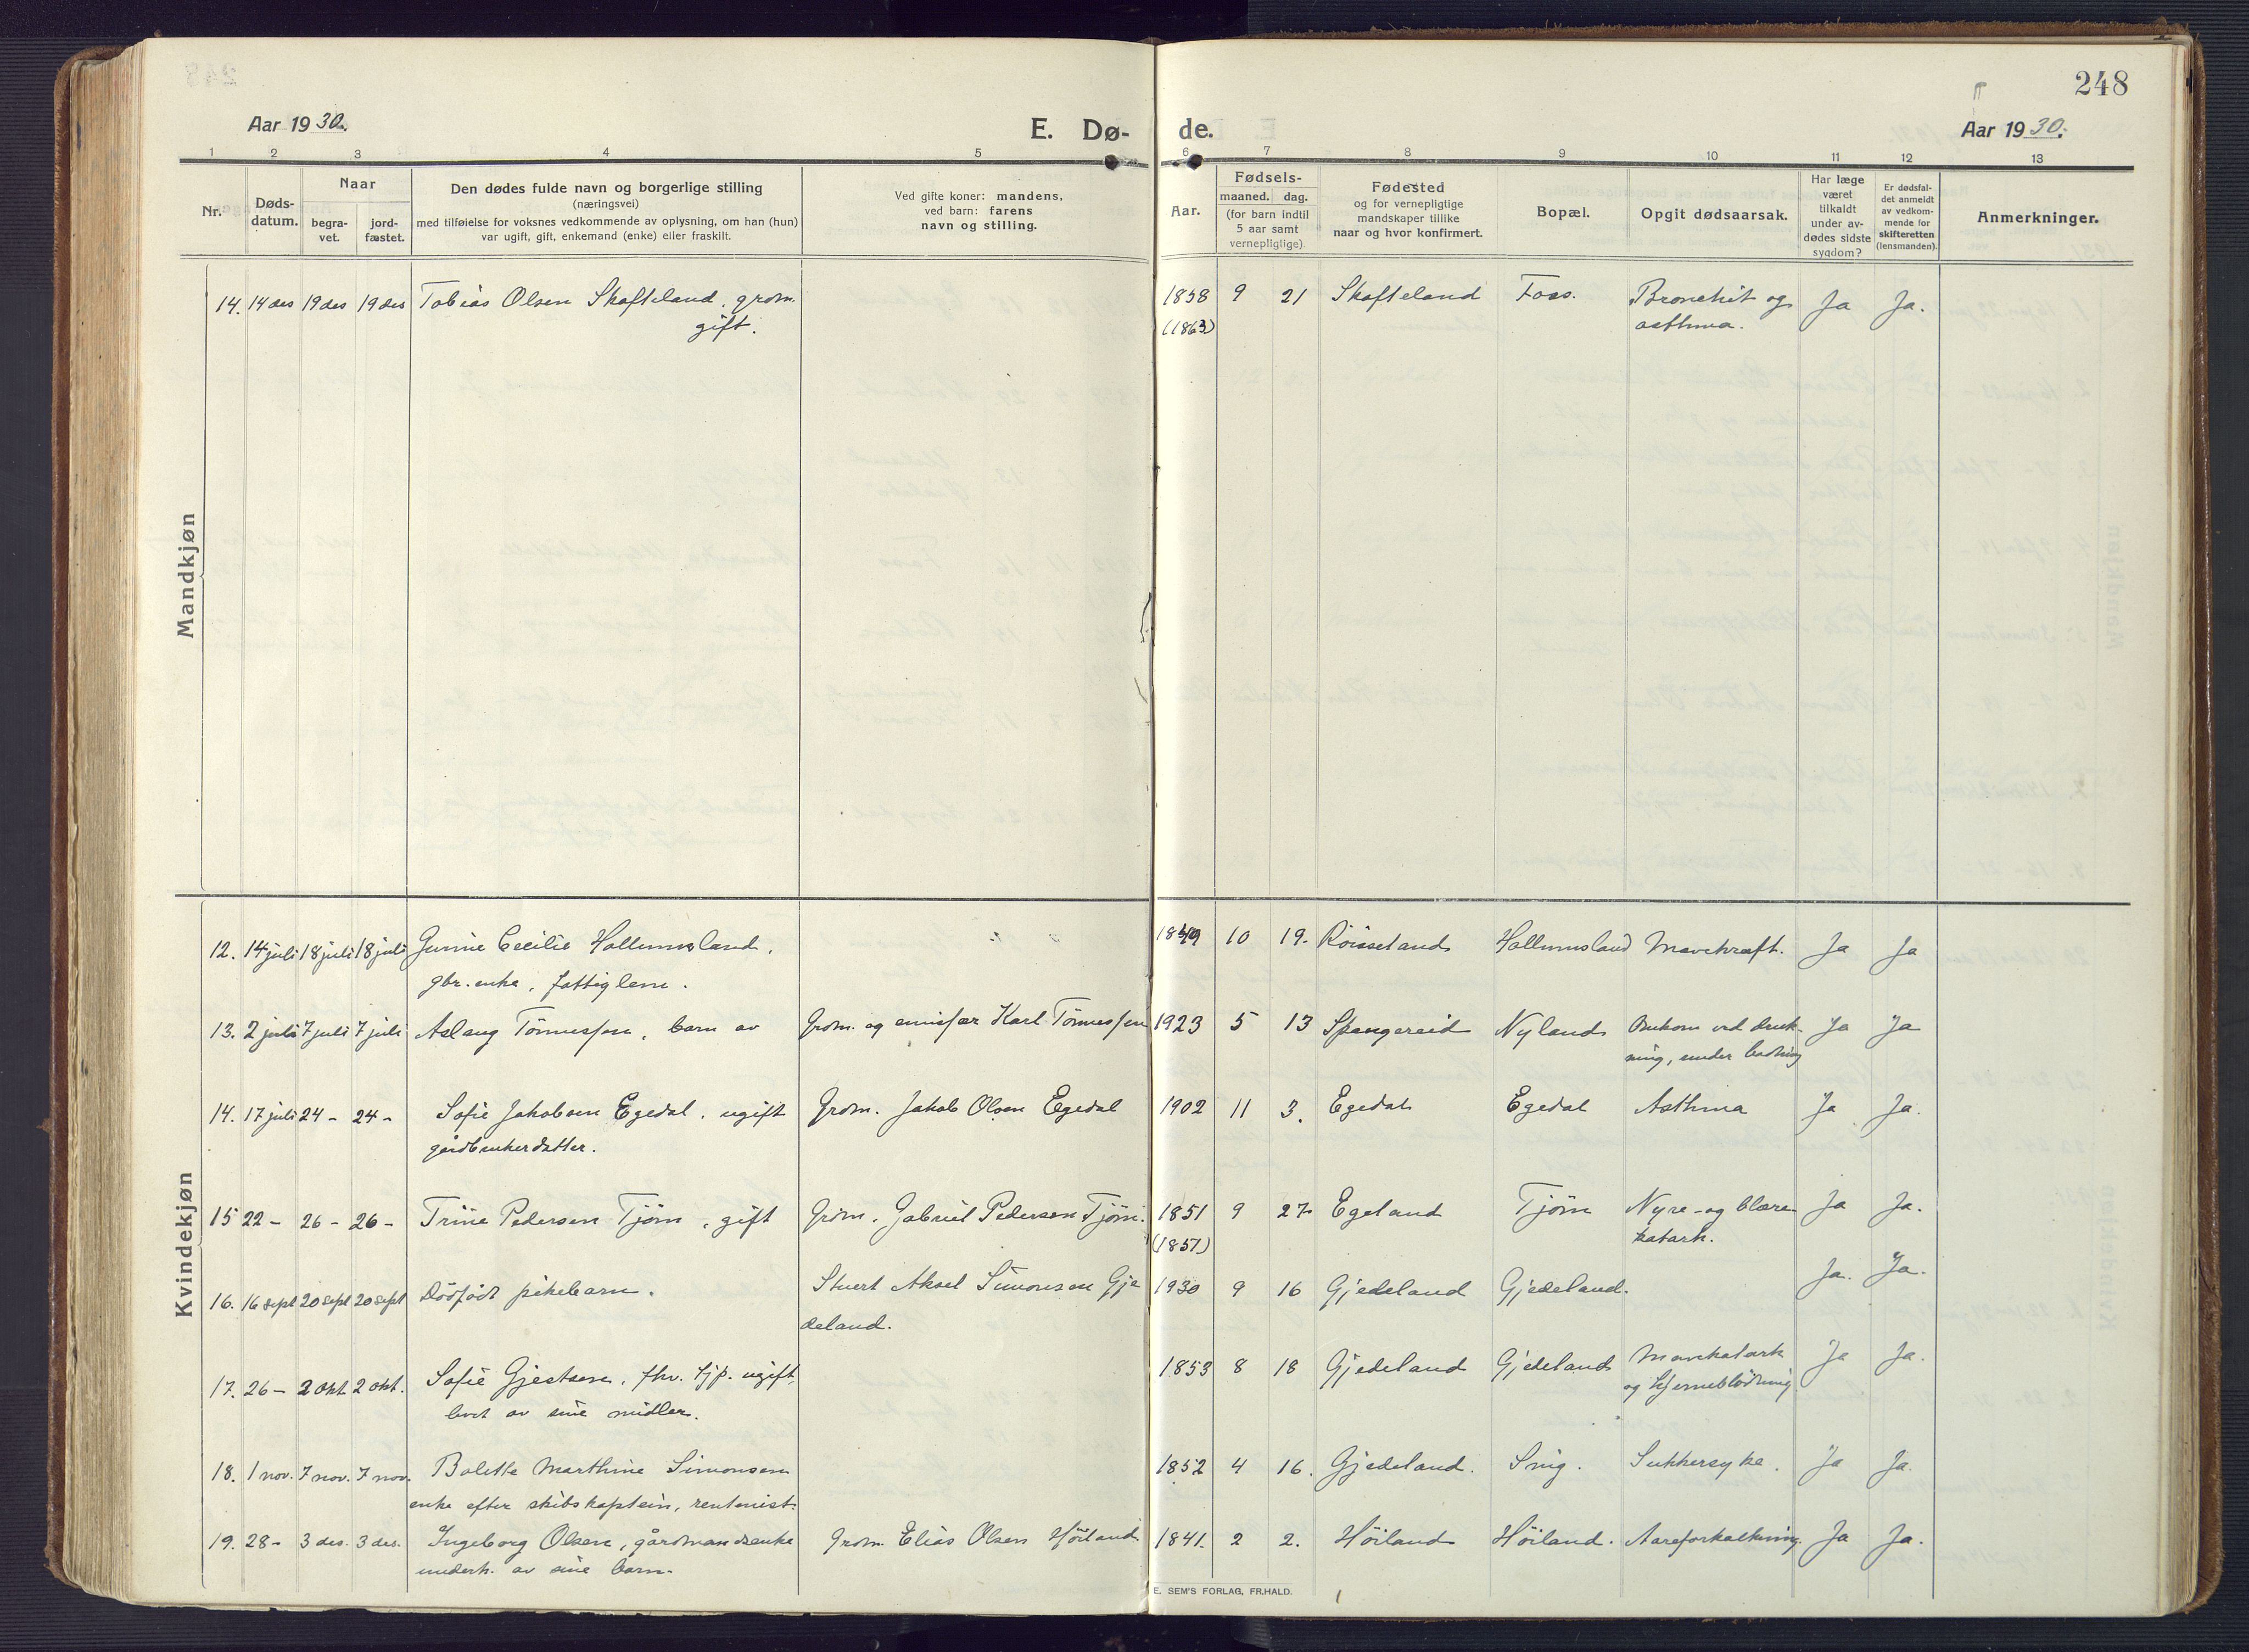 248
Aar 1930.
E. Dø-
de.
Aar 1930.
1 2 3 4 5 6 7 8 9 10 11 12 13
Nr.
Døds-
datum.
Naar
begra-
vet.
jord-
fæstet.
Den dødes fulde navn og borgerlige stilling
(næringsvei)
med tilføielse for voksnes vedkommende av oplysning, om han (hun)
var ugift, gift, enkemand (enke) eller fraskilt.
Ved gifte koner: mandens,
ved barn: farens
navn og stilling.
Aar.
Fødsels-
maaned. dag.
(for barn indtil
5 aar samt
vernepligtige)
Fødested
og for vernepligtige
mandskaper tillike
naar og hvor konfirmert.
Bopæl.
Opgit dødsaarsak.
Har læge
været
tilkaldt
under av-
dødes sidste
sygdom?
Er dødsfal-
det anmeldt
av vedkom-
mende for
skifteretten
(lensmanden).
Anmerkninger.
Mandkjøn
14. 14 des 19 des 19 des Tobias Olsen Skofteland, grdm. 1858 9 21 Skofteland Foss. Bronchit og Ja Ja.
gift. (1863) asthma.
Kvindekjøn
12. 14 juli 18 juli 18 juli Gunnie Cecilie Hallumsland, 1849 10 19. Röisseland Hallumsland Mavekræft. Ja Ja
gbr. enke, fattiglem.
13. 2 juli 7 juli 7 juli Aslaug Tönnessen, barn av Grdm. og emisær Karl Tönnessen 1923 5 13 Spangereid Nyland Omkom ved druk- Ja Ja
ning, under badning
14. 17 juli 24 - 24 - Sofie Jakobsen Egedal, ugift Grdm. Jakob Olsen Egedal 1902 11 3. Egedal Egedal Asthma Ja Ja.
gårdbrukerdatter.
15 22 - 26 - 26 - Trine Pedersen Tjöm, gift Grdm. Gabriel Pedersen Tjöm. 1851 9 27 Egeland Tjöm Nyre- og blære- Ja Ja.
(1857) katarh.
16. 16 sept 20 sept 20 sept Dödfödt pikebarn. Stuert Aksel Simonsen Gje 1930 9 16 Gjedeland Gjedeland. Ja. Ja.
deland.
17. 26 - 2 okt. 2 okt. Sofie Gjestsen, fhv. tjp. ugift, 1853 8 18 Gjedeland Gjedeland Mavekatarh Ja Ja.
levet av sine midler. og hjerneblödning
18. 1 nov. 7 nov. 7 nov. Bolette Marthine Simonsen 1852 4 16. Gjedeland. Snig. Sukkersyke. Ja Ja.
enke efter skibskaptein, rentenist.
19. 28 - 3 des. 3 des. Ingeborg Olsen, gårdmandsenke Grdm. Elias Olsen Höiland 1841. 2 2. Höiland Höiland. Aareforkalkning. Ja Ja.
underh. av sine barn.
E. SEM'S FORLAG, FR.HALD.